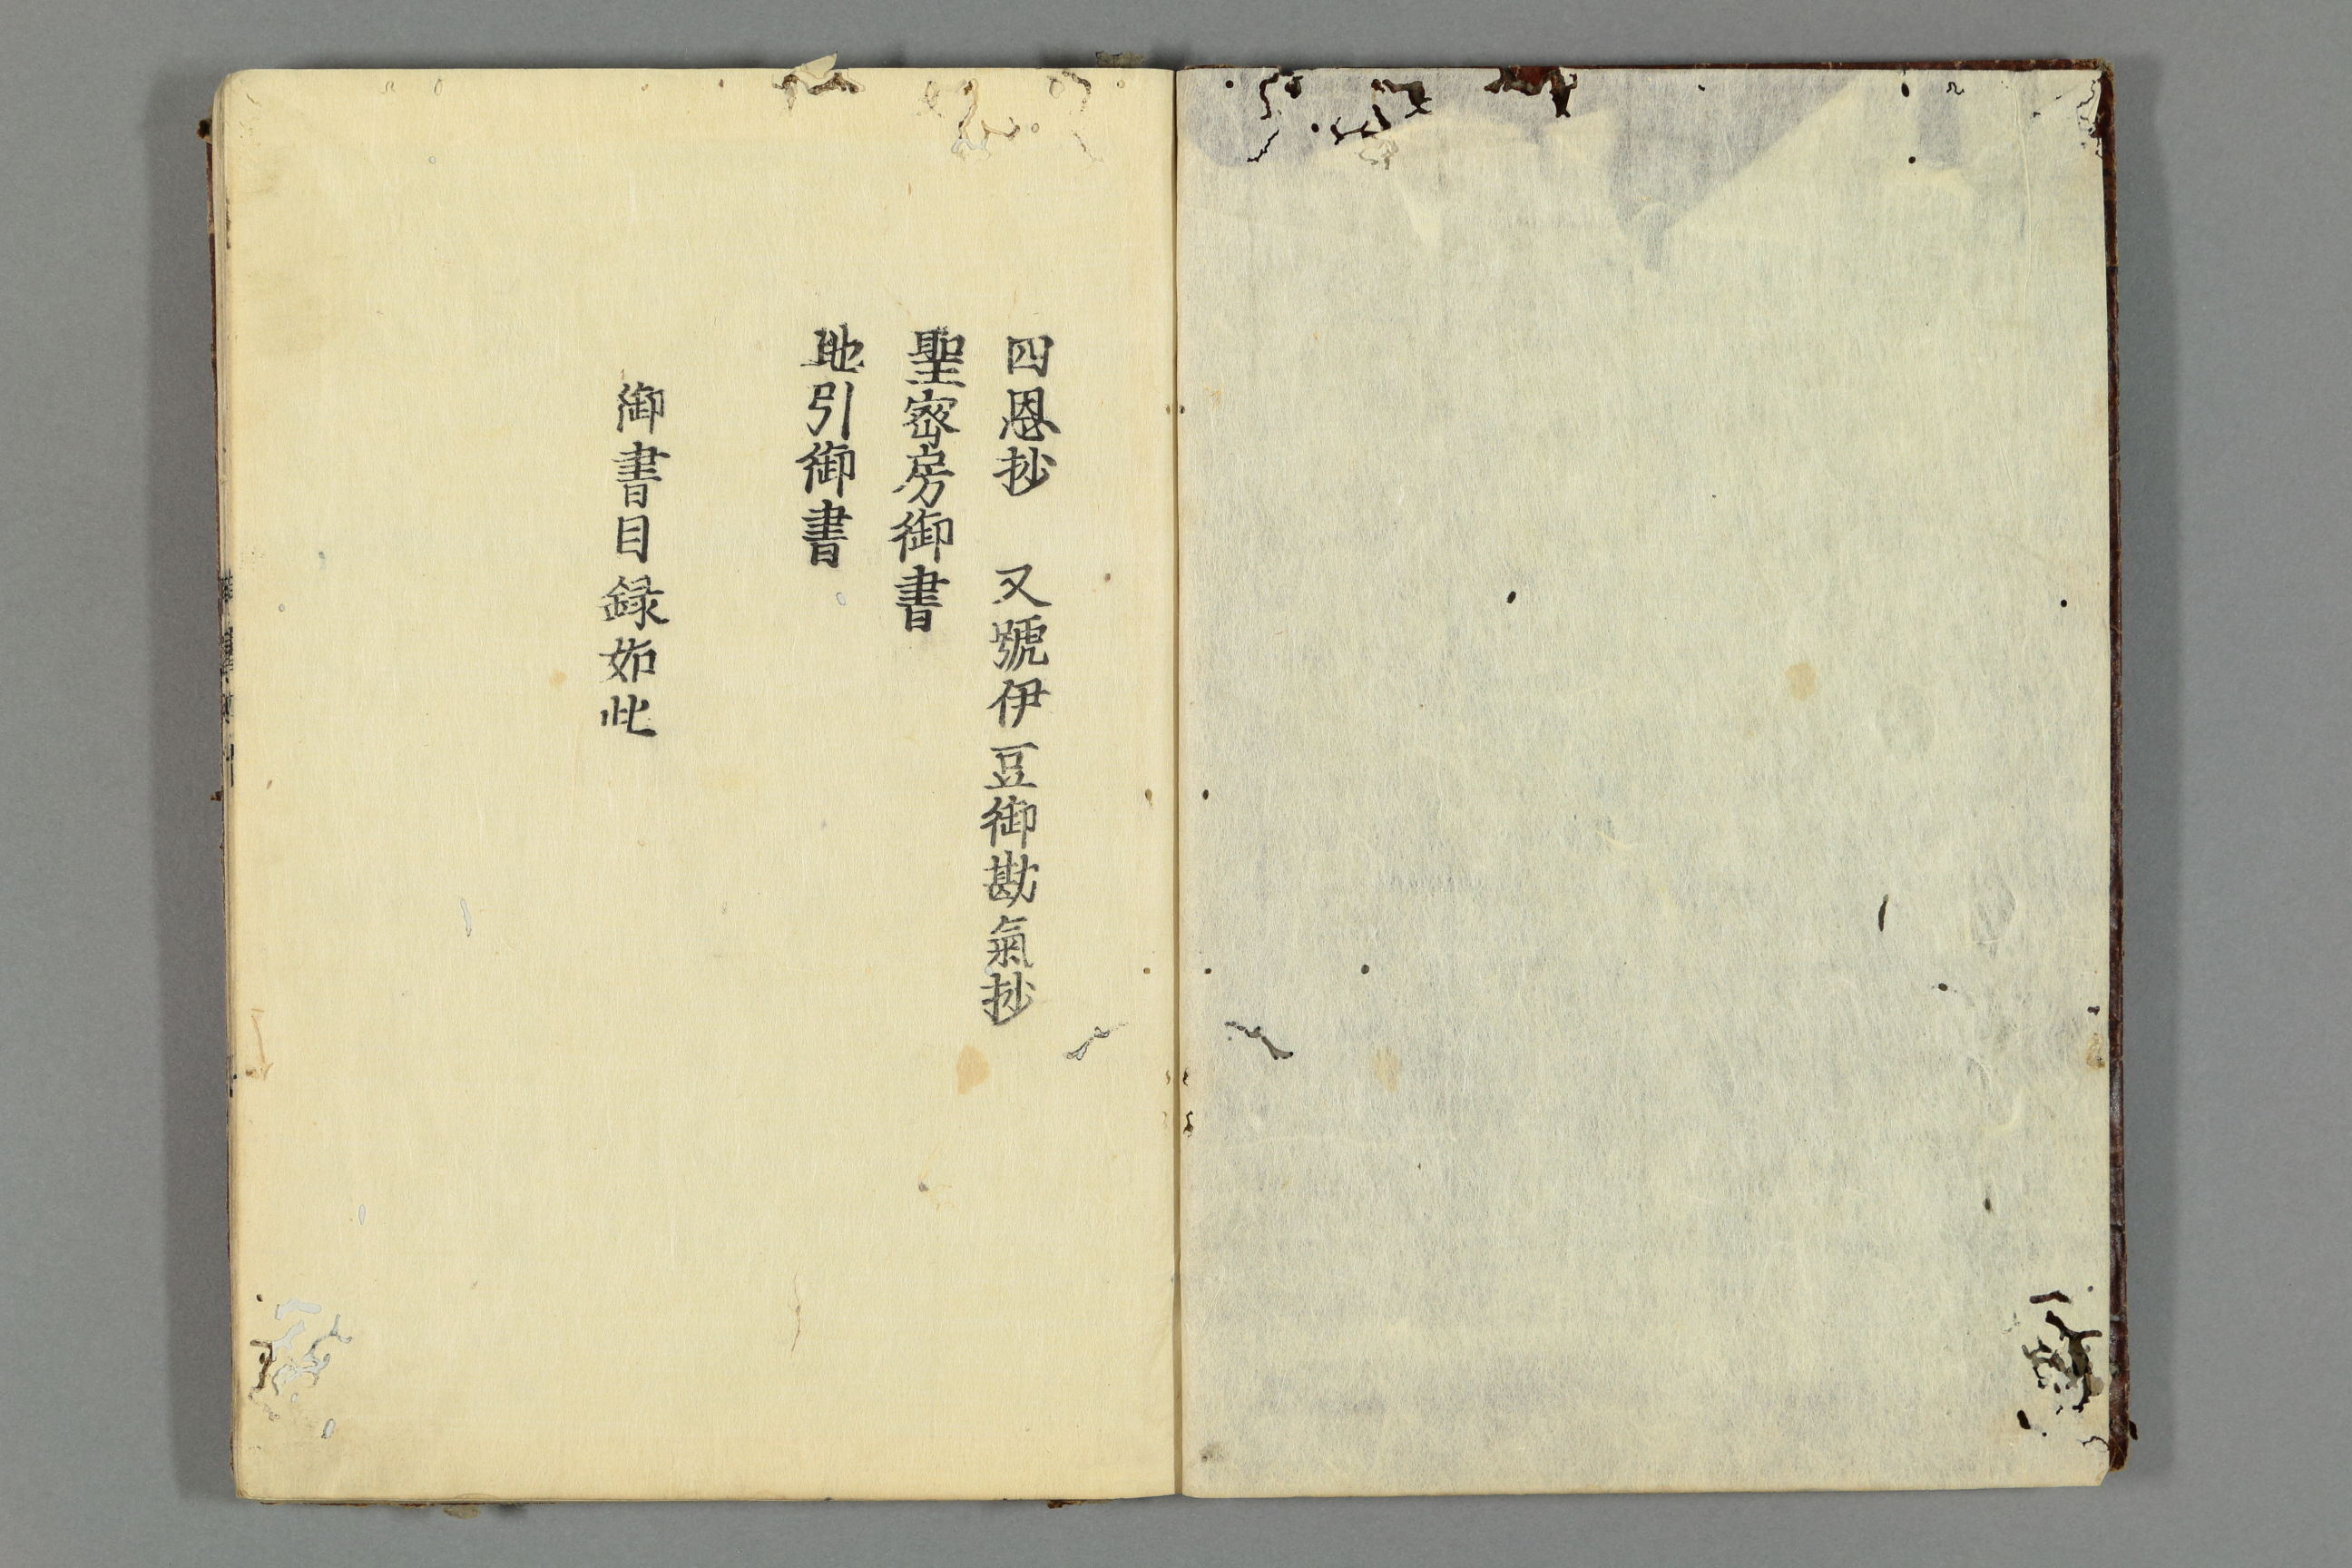 四恩抄　又號伊豆御勘氣抄
聖密房御書
地引御書
御書目録如此